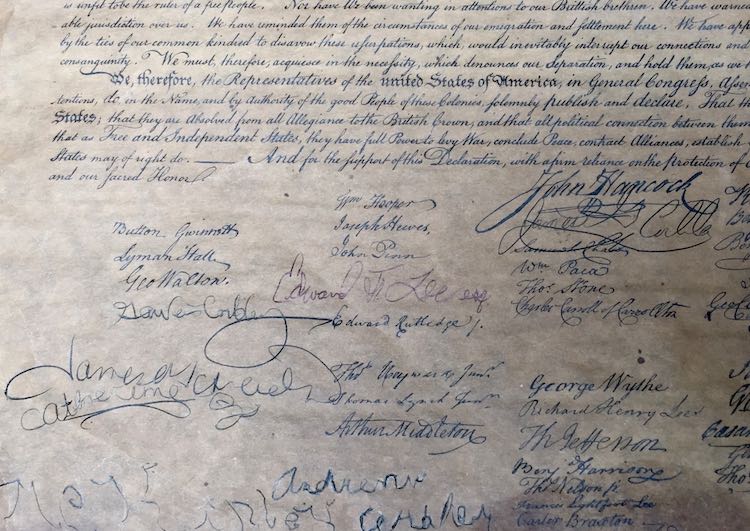 is unfit to be the ruler of a free people. Nor have We been wanting in attentions to our Brittish brethren. We have warne
able jurisdiction over us. We have reminded them of the circumstances of our emigration and settlement here. We have app
by the ties of our common kindred to disavow these usurpations, which, would inevitably interrupt our connections and
consanguinity. We must, therefore, acquiesce in the necessity, which denounces our Separation, and hold them, as we h
We, therefore, the Representatives of the united States of America, in General Congress, Assem
tentions, do, in the Name, and by Authority of the good People of these Colonies, solemnly publish and declare, That th
States; that they are Absolved from all Allegiance to the British Crown, and that all political connection between them
that as Free and Independent States, they have full Power to levy War, conclude Peace, contract Alliances, establish
States may of right do. — And for the support of this Declaration, with a firm reliance on the Protection of
and our sacred Honor.
John Hancock
Button Gwinnett
Lyman Hall
Geo Walton.
Wm Hooper
Joseph Hewes,
John Penn
Edward F. Lee esq
Edward Rutledge
James
Catherine
Thos Heyward Junr.
Thomas Lynch Junr.
Arthur Middleton
Samuel Chase
Wm Paca
Thos Stone
Charles Carroll of Carrollton
George Wythe
Richard Henry Lee
Th Jefferson
Benj Harrison
Thos Nelson jr
Francis Lightfoot Lee
Carter Braxton
Andrew